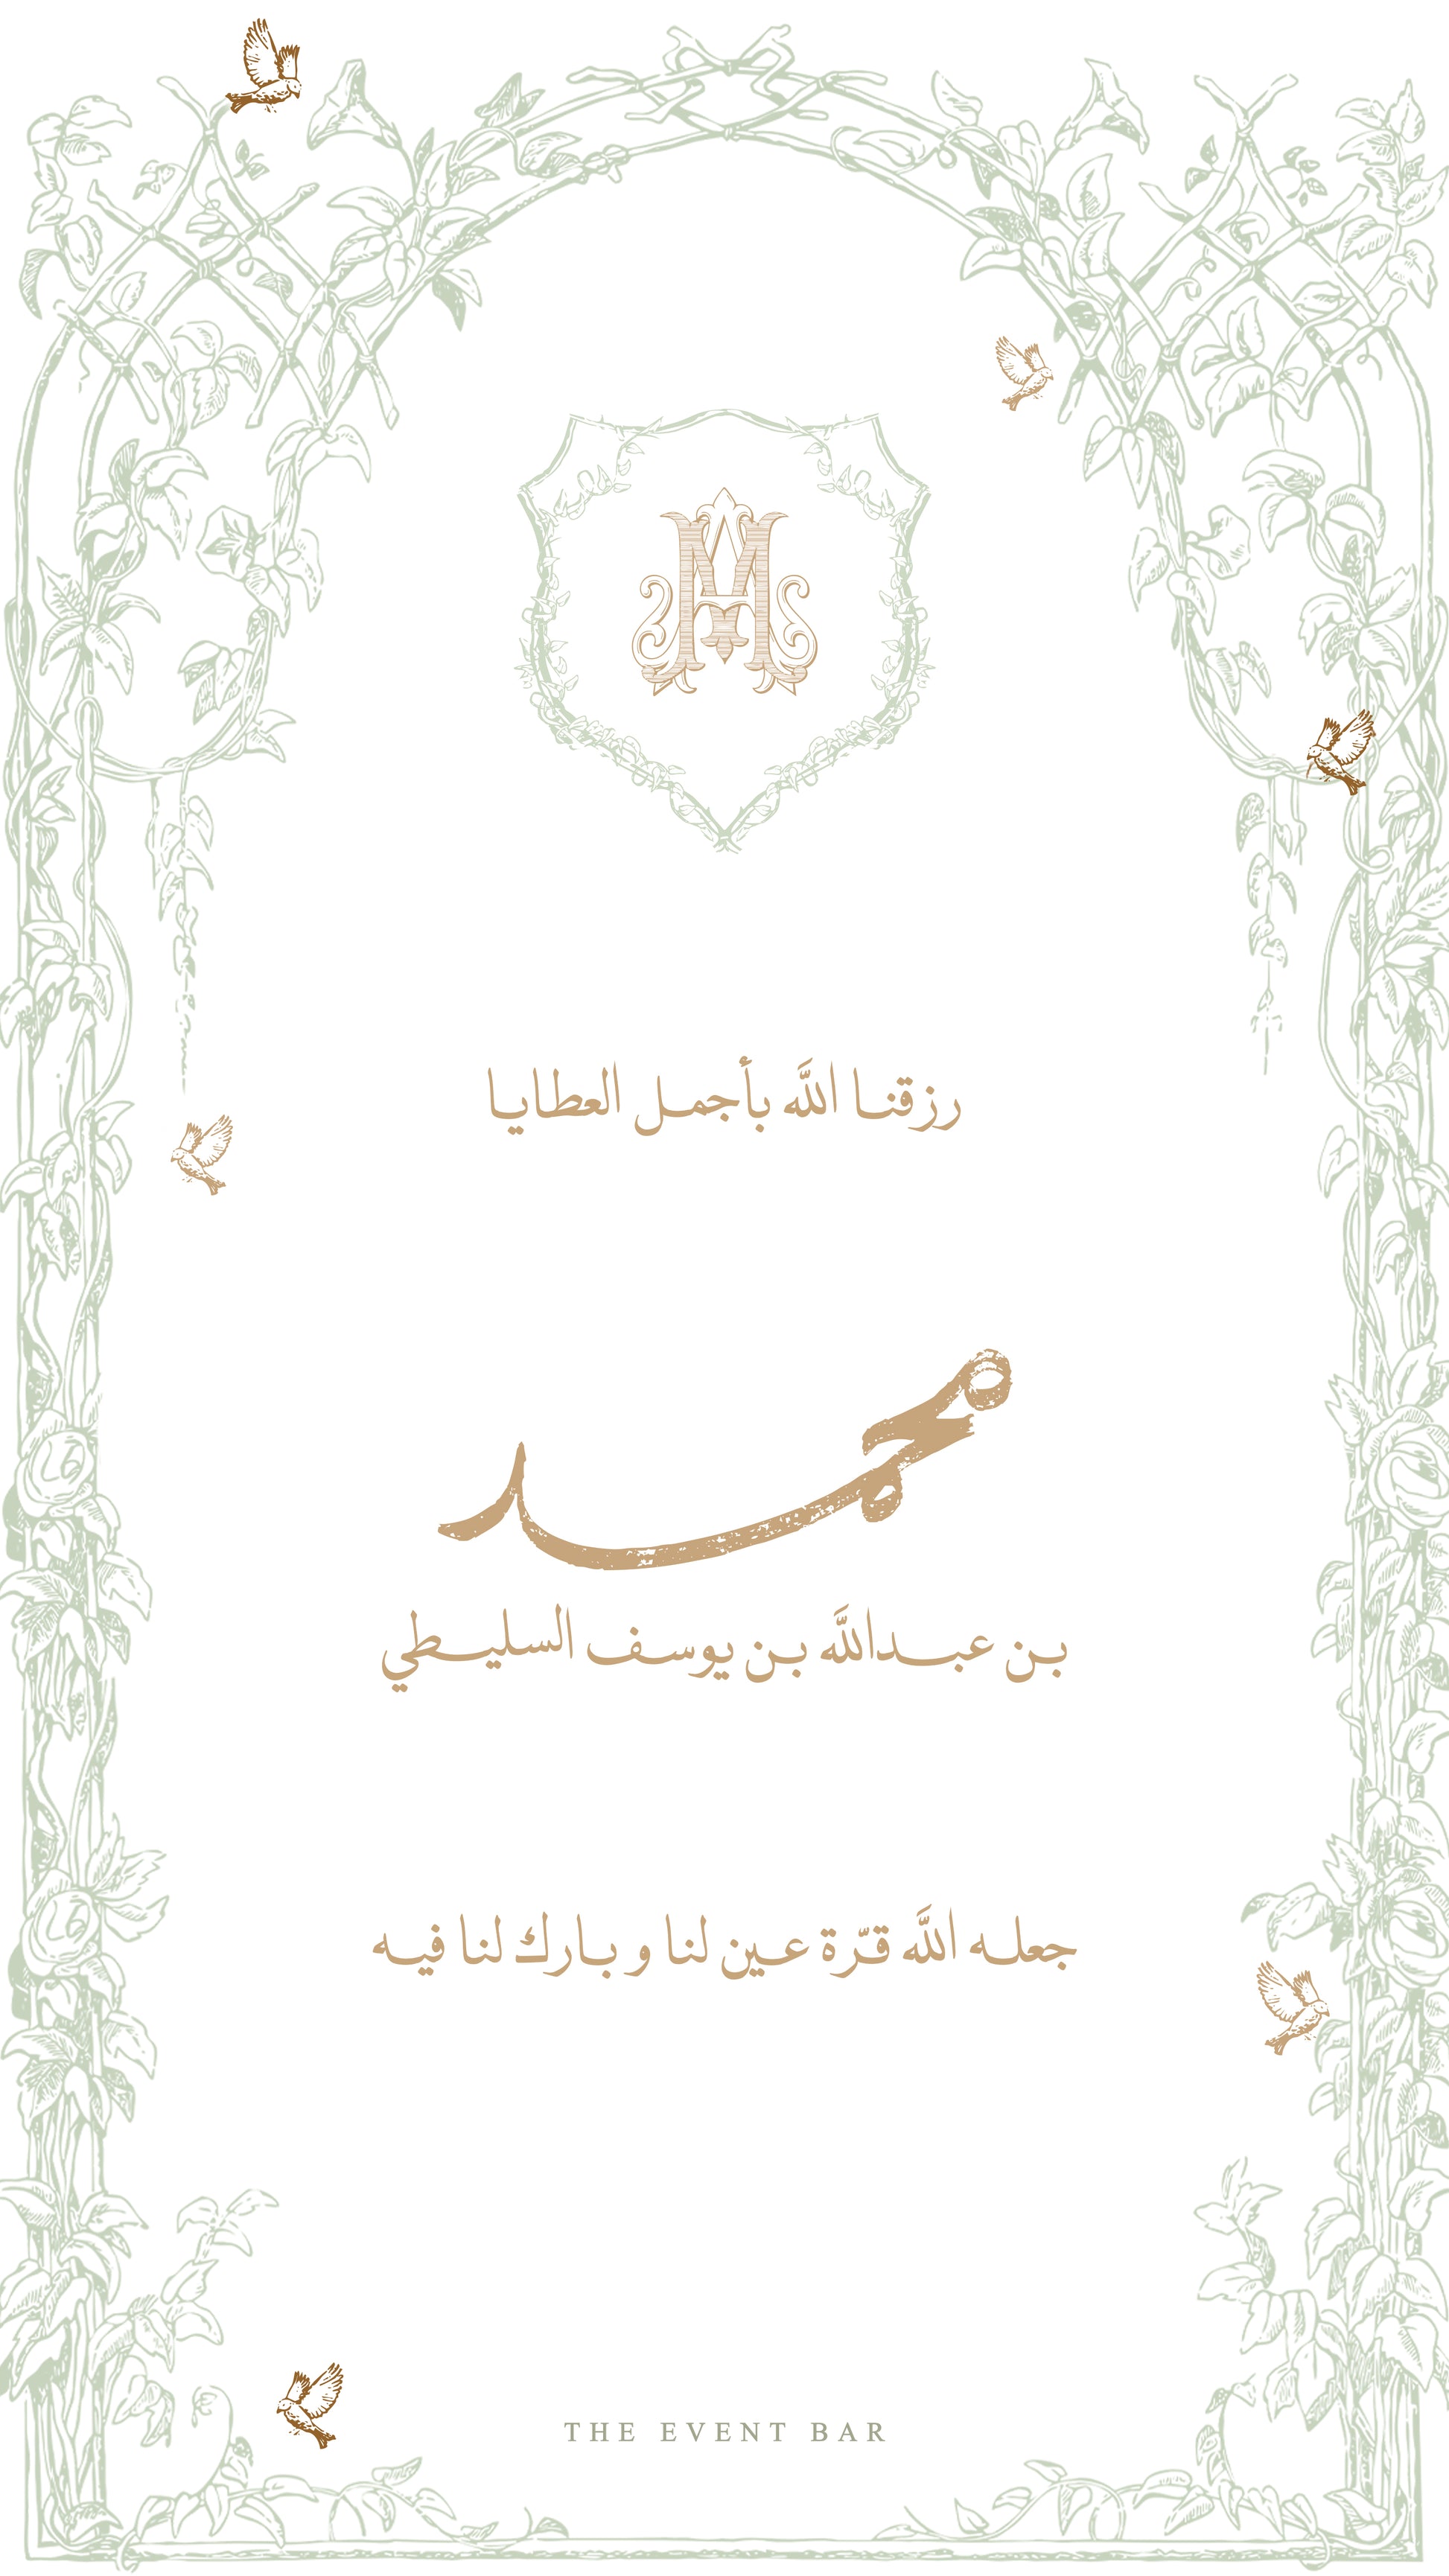 MA
رزقنا الله بأجمل العطايا
محمد
بن عبدالله بن يوسف السليطي
جعله الله قرّة عين لنا و بارك لنا فيه
THE EVENT BAR